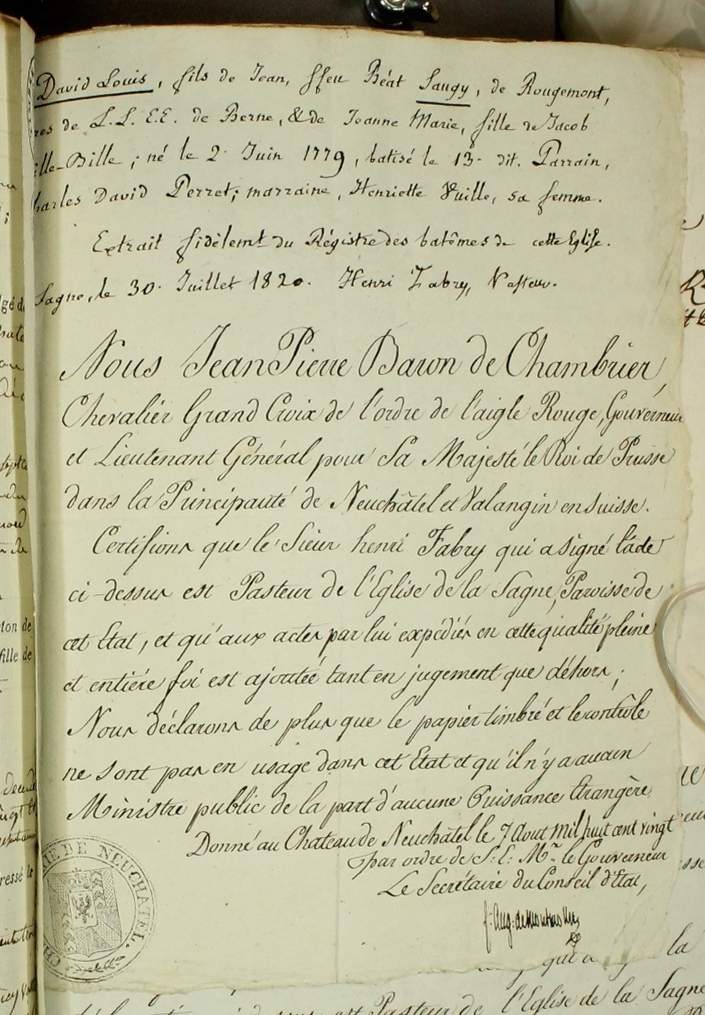 David Louis, fils de Jean, ffeu Béat Saugy, de Rougemont,
res de L.L. E.E. de Berne, & de Jeanne Marie, fille de Jacob
ille-Bille; né le 2. Juin 1779, batisé le 13. dit. Parrain,
harles David Perret; marraine, Henriette Vuille, sa femme.
Extrait fidèlemt. du Régistre des batêmes de cette Eglise.
Sagne, le 30. Juillet 1820. Henri Fabry, Pasteur.
Nous Jean Pierre Baron de Chambrier,
Chevalier Grand Croix de l'ordre de l'aigle Rouge, Gouverneur
et Lieutenant Général pour Sa Majesté le Roi de Prusse
dans la Principauté de Neuchâtel et Valangin en Suisse.
Certifions que le Sieur henri Fabry qui a signé l'acte
ci-dessus est Pasteur de l'Eglise de la Sagne, Paroisse de
cet Etat, et qu'aux actes par lui expédiés en cette qualité pleine
et entiére foi est ajoutée tant en jugement que déhors;
Nous déclarons de plus que le papier timbré et le contrôle
ne sont pas en usage dans cet Etat et qu'il n'y a aucun
Ministre public de la part d'aucune Puissance Etrangère
Donné au Chateau de Neuchatel le 7 Aout mil huit cent vingt
par ordre de S: E: Mr. le Gouverneur
Le Secrétaire du Conseil d'Etat,
IE DE NEUCHATEL.
qui a la
est Pasteur de l'Eglise de la Sagne